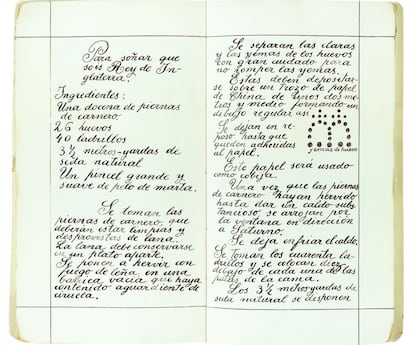 Para soñar que
sois Rey de In-
glaterra:
Ingredientes:
Una docena de piernas
de carnero.
26 huevos
40 ladrillos
3½ metros-yardas de
seda natural
Un pincel grande y
suave de pelo de marta.
Se toman las
piernas de carnero, que
deberán estar limpias y
desprovistas de lana.
La lana debe conservarse
en un plato aparte.
Se ponen a hervir con
fuego de leña en una
barrica vacía que haya
contenido aguardiente de
ciruela.
Se separan las claras
y las yemas de los huevos
con gran cuidado para
no romper las yemas.
Estas deben depositar-
se sobre un trozo de papel
de China de unos dos me-
tros y medio formando un
dibujo regular así:
Se dejan en re-
poso hasta que
queden adheridas
al papel.
Este papel será usado
como cobija.
Una vez que las piernas
de carnero hayan hervido
hasta dar un caldo subs-
tancioso, se arrojan por
la ventana en dirección
a Saturno.
Se deja enfriar el caldo.
Se toman los cuarenta la-
drillos y se colocan diez
debajo de cada una de las
patas de la cama.
Los 3½ metros-yardas de
seda natural se disponen